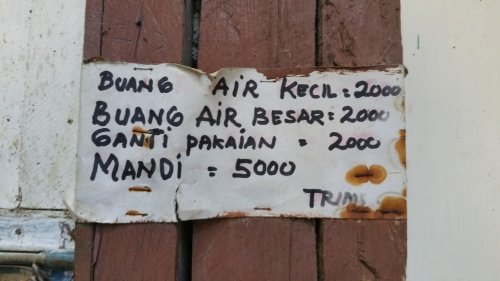 BUANG AIR KECIL = 2000
BUANG AIR BESAR = 2000
GANTI PAKAIAN = 2000
MANDI = 5000
TRIMS